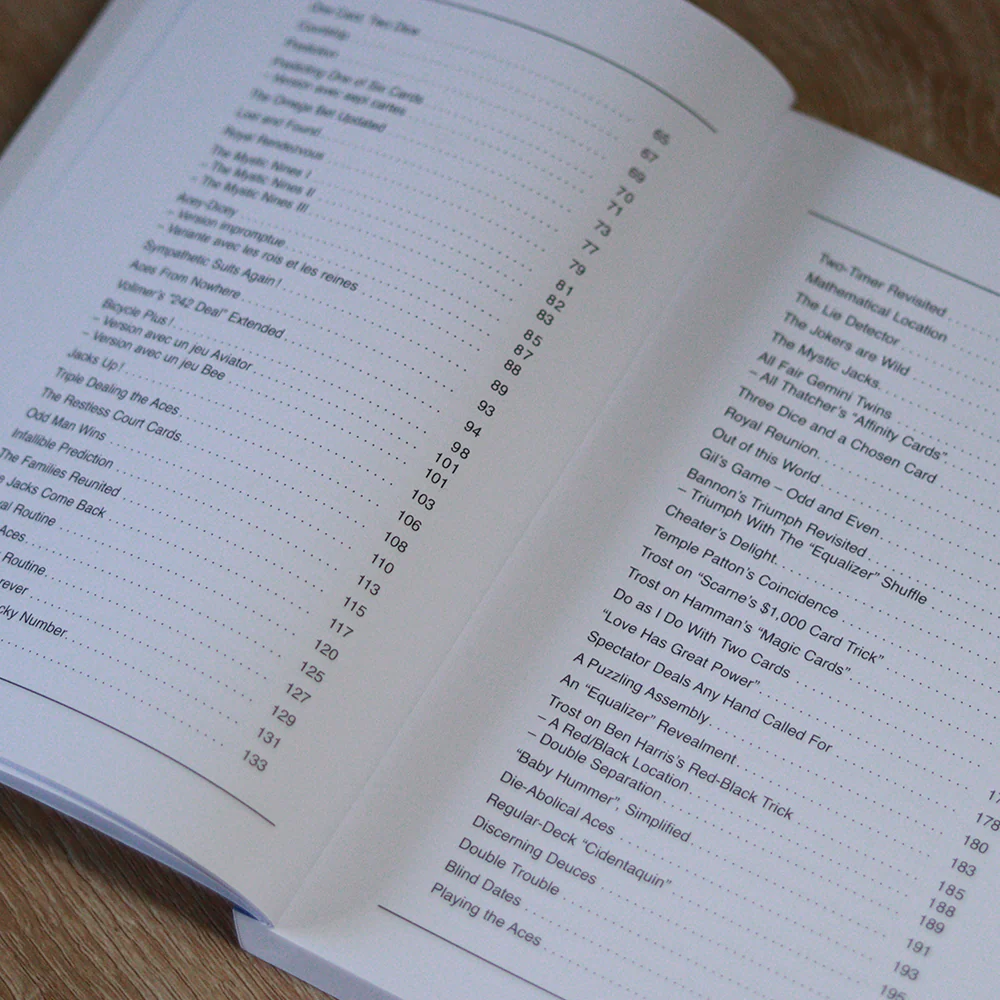 One Card, Two Dice 65
67
Prediction 69
Predicting One of Six Cards 70
– Version avec sept cartes 71
The Omega Bet Updated 73
Lost and Found 77
Royal Rendezvous 79
The Mystic Nines I 81
– The Mystic Nines II 82
– The Mystic Nines III 83
Acey-Dicey 85
– Version impromptue 87
– Variante avec les rois et les reines 88
Sympathetic Suits Again ! 89
Aces From Nowhere 93
Vollmer's “242 Deal” Extended 94
Bicycle Plus ! 98
– Version avec un jeu Aviator 101
– Version avec un jeu Bee 101
Jacks Up ! 103
Triple Dealing the Aces 106
The Restless Court Cards 108
Odd Man Wins 110
Infallible Prediction 113
The Families Reunited 115
e Jacks Come Back 117
al Routine 120
Aces 125
Routine 127
rever 129
cky Number 131
133
Two-Timer Revisited
Mathematical Location
The Lie Detector
The Jokers are Wild
The Mystic Jacks
All Fair Gemini Twins
– All Thatcher's “Affinity Cards”
Three Dice and a Chosen Card
Royal Reunion
Out of this World
Gil's Game – Odd and Even
Bannon's Triumph Revisited
– Triumph With The “Equalizer” Shuffle
Cheater's Delight
Temple Patton's Coincidence
Trost on “Scarne's $1,000 Card Trick”
Trost on Hamman's “Magic Cards”
Do as I Do With Two Cards
“Love Has Great Power”
Spectator Deals Any Hand Called For
A Puzzling Assembly
An “Equalizer” Revealment
Trost on Ben Harris's Red-Black Trick
– A Red/Black Location
– Double Separation
“Baby Hummer”, Simplified
Die-Abolical Aces
Regular-Deck “Cidentaquin”
Discerning Deuces
Double Trouble
Blind Dates
Playing the Aces
178
180
183
185
188
189
191
193
195